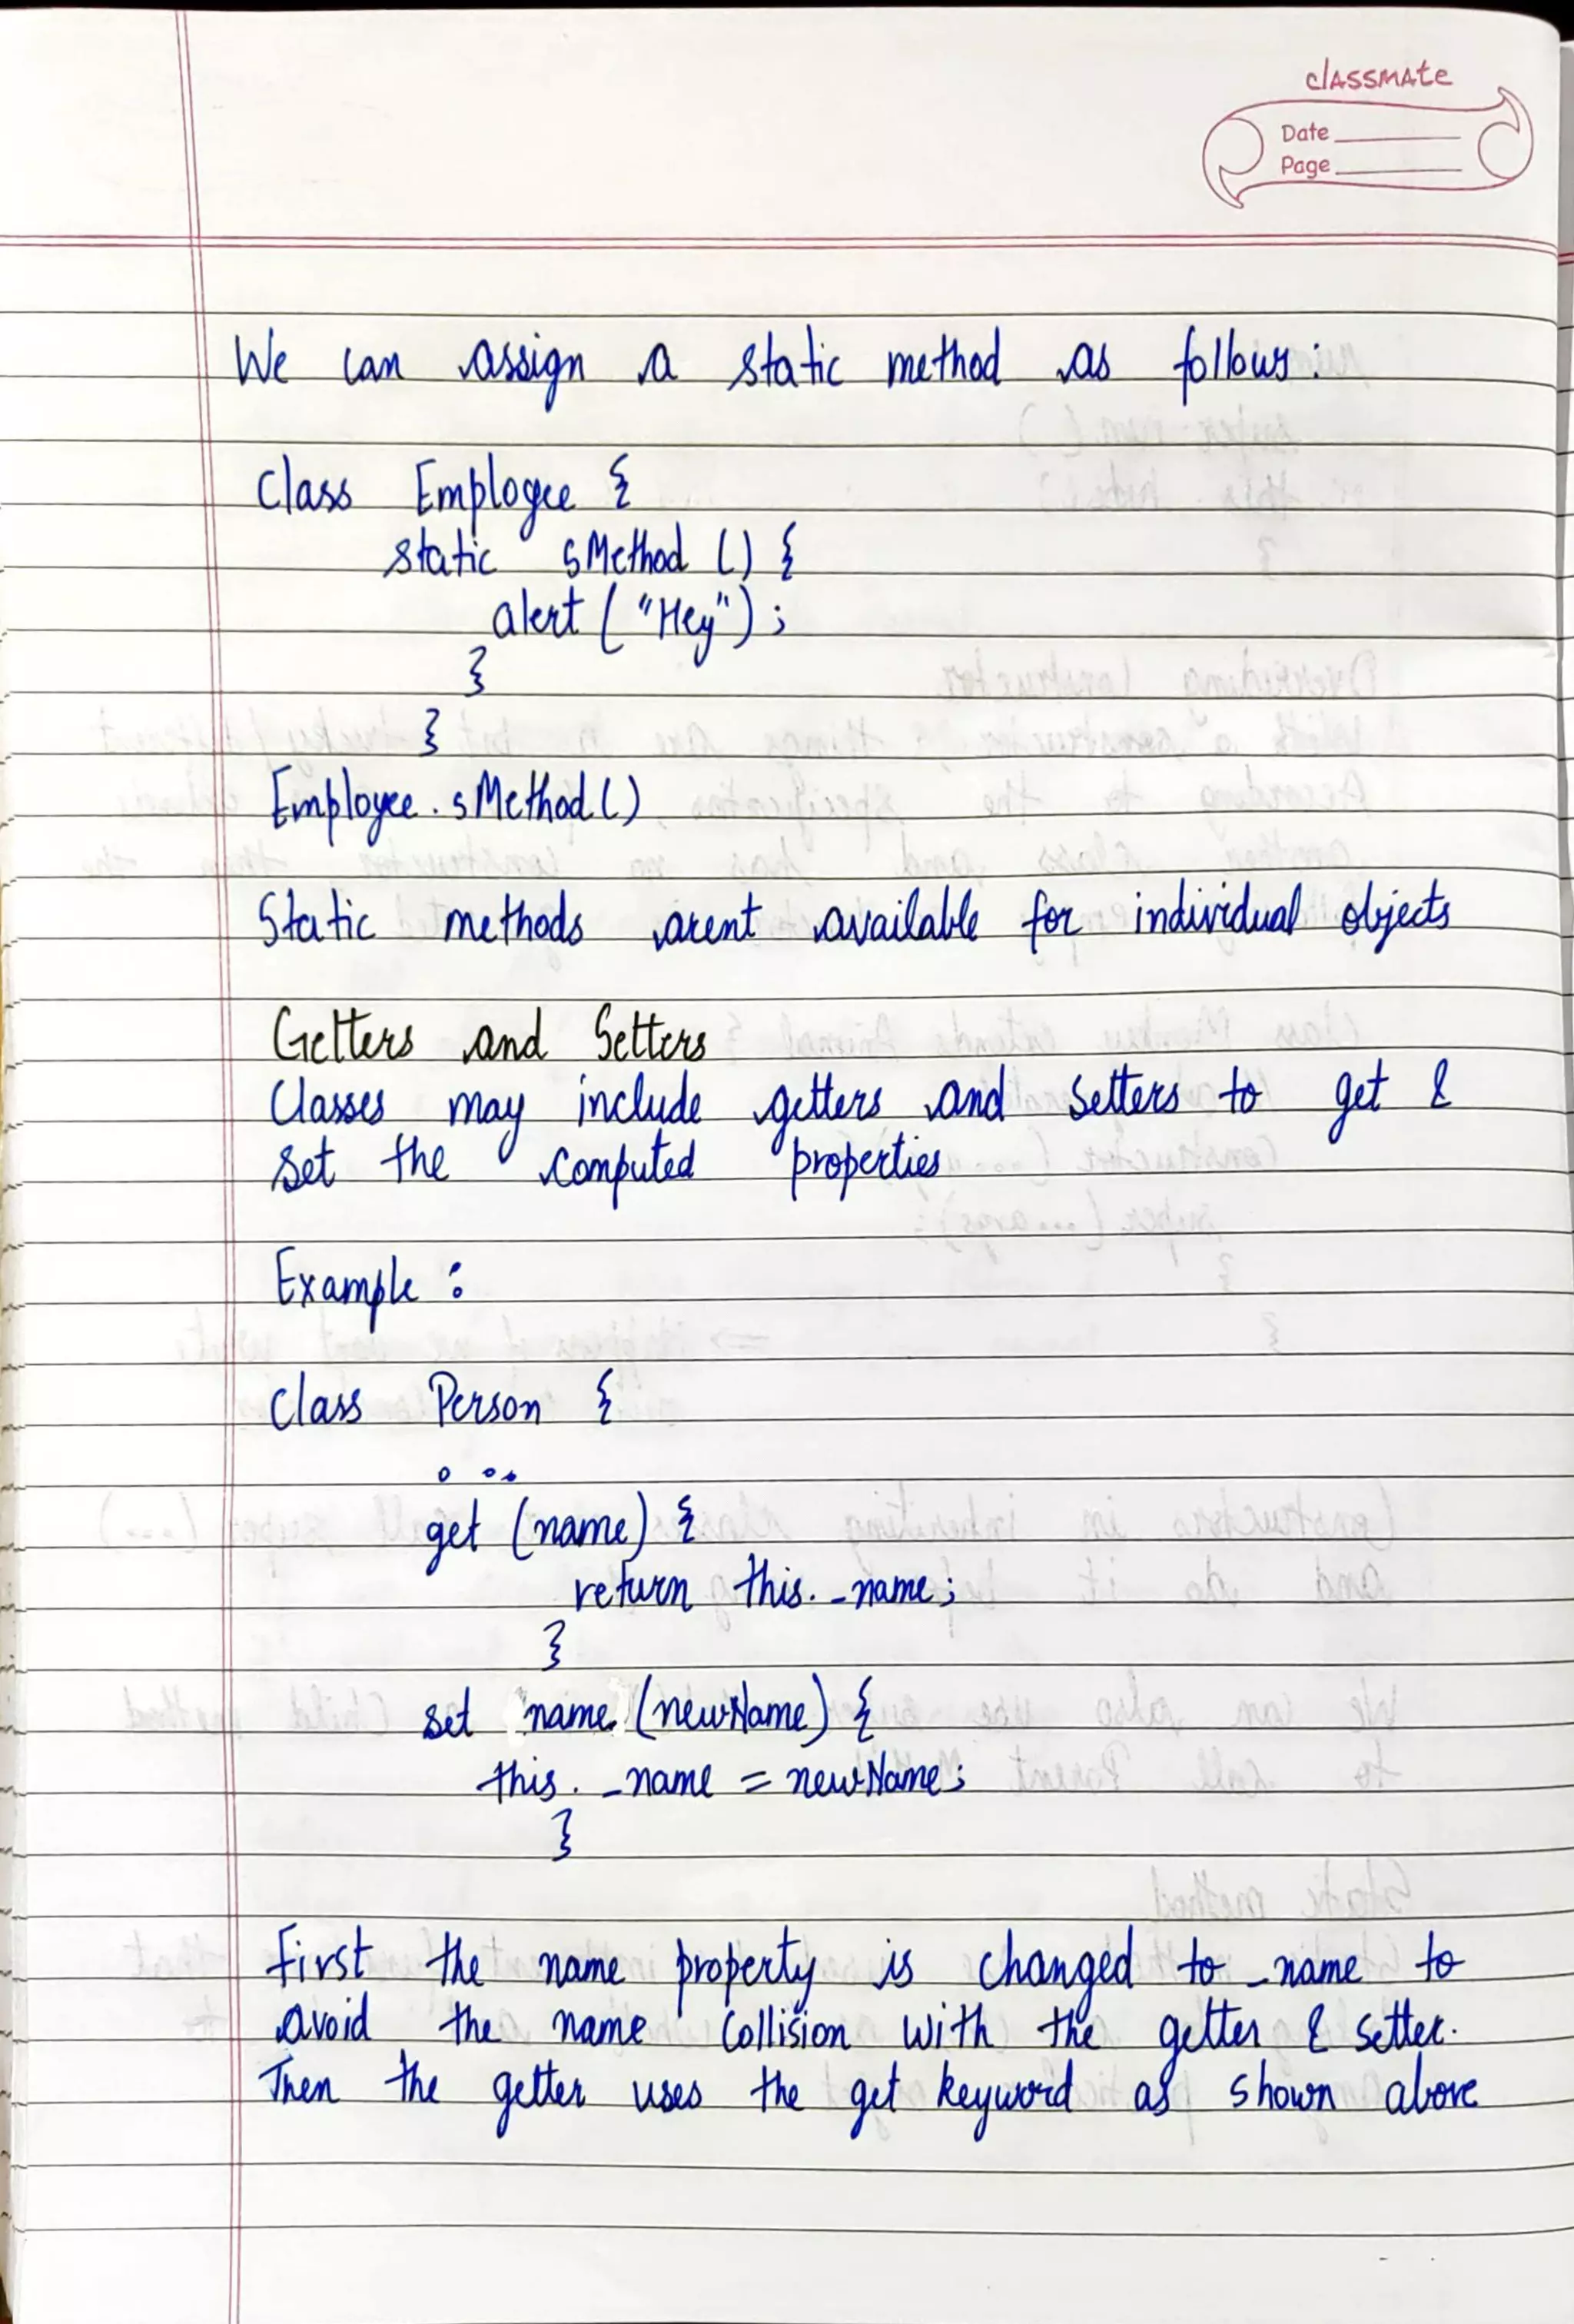 classmate
Date
Page
We can assign a static method as follows:
Class Employee {
static sMethod () {
alert ("Hey");
}
}
Employee.sMethod()
Static methods arent available for individual objects
Getters and Setters
Classes may include getters and setters to get &
set the computed properties
Example :
Class Person {
...
get (name) {
return this._name;
}
set name (newName) {
this._name = newName;
}
First the name property is changed to _name to
avoid the name collision with the getter & setter.
Then the getter uses the get keyword as shown above